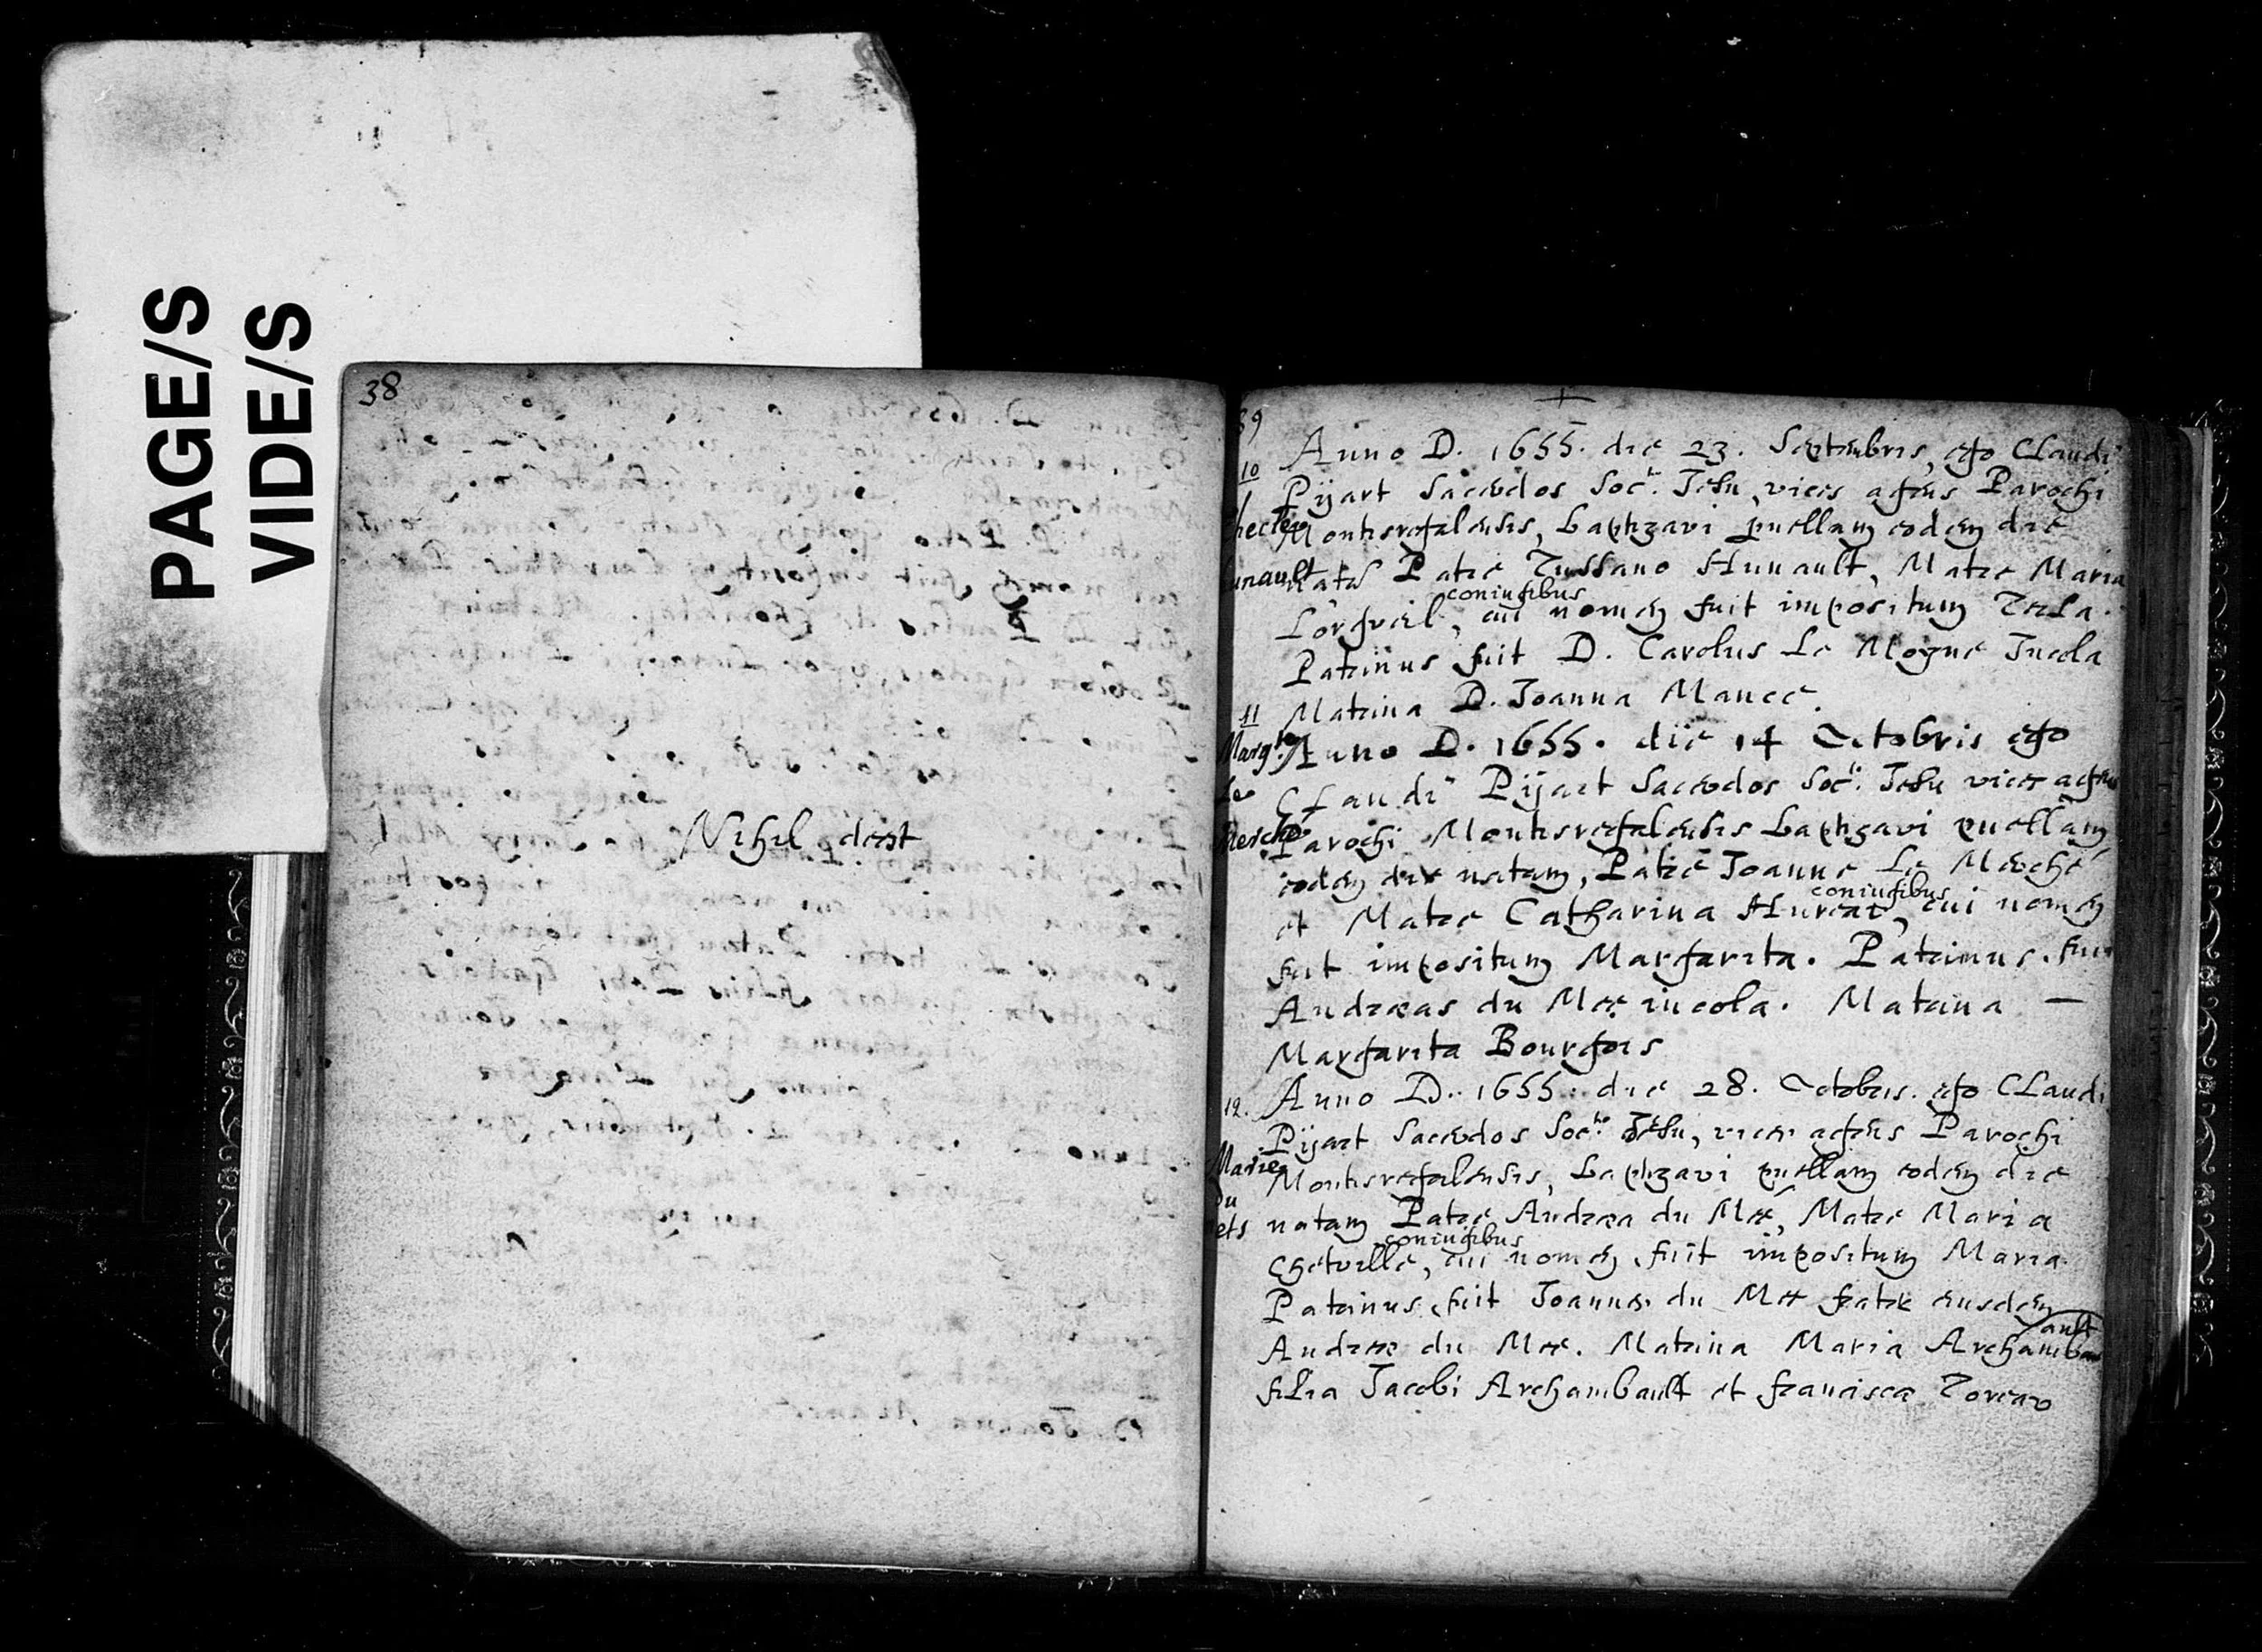 PAGE/S
VIDE/S
38
Nihil deest
39
10
Anno D. 1655. die 23. Septembris, ego Claudi
Pijart Sacerdos Soc.tis Jesu, vices agens Parochi
Montisregalensis, baptizavi puellam eodem die
Thecle
hunault
natã Patre Tussano Hunault, Matre Maria
coniugibus
Lorgveil, cui nomen fuit impositum Tecla.
Patrinus fuit D. Carolus Le Moyne Incola
Matrina D. Joanna Mance.
11
Margte
Le
Merché
Anno D. 1655. die 14 Octobris ego
Claudi Pijart Sacerdos Soc.tis Jesu vices agens
Parochi Montisregalensis baptizavi puellam
eodem die natam, Patre Joanne Le Merché
coniugibus
et Matre Catharina Hureat, cui nomen
fuit impositum Margarita. Patrinus fuit
Andræas du Mee incola. Matrina —
Margarita Bourgois
12.
Anno D. 1655. die 28. Octobris. ego Claudi
Pijart Sacerdos Soc.tis Jesu, vices agens Parochi
Marie
Du
mets
Montisregalensis, baptizavi puellam eodem die
natam Patre Andræa du Mee, Matre Maria
coniugibus
Chetville, cui nomen fuit impositum Maria
Patrinus fuit Joannes du Mee frater eiusdem
Andreæ du Mee. Matrina Maria Archambault
filia Jacobi Archambault et franciscæ Toreav